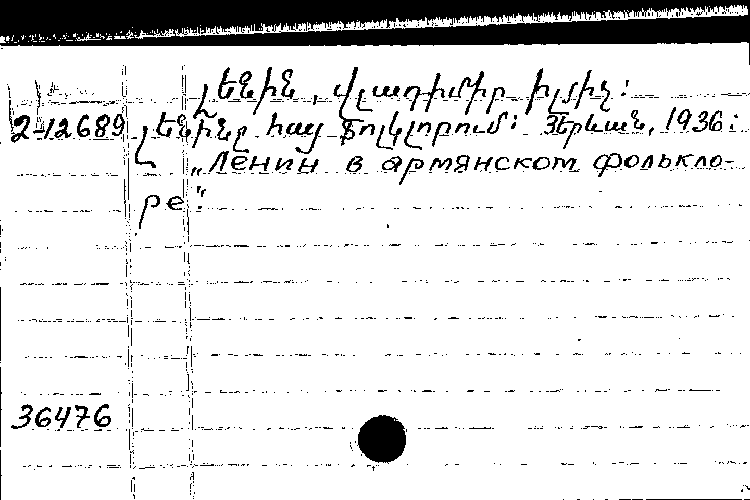 Լենին, Վլադիմիր Իլյիչ:
2-12689 Լենինը հայ ֆոլկլորում: Երևան, 1936:
„Ленин в армянском фолькло-
ре":
36476